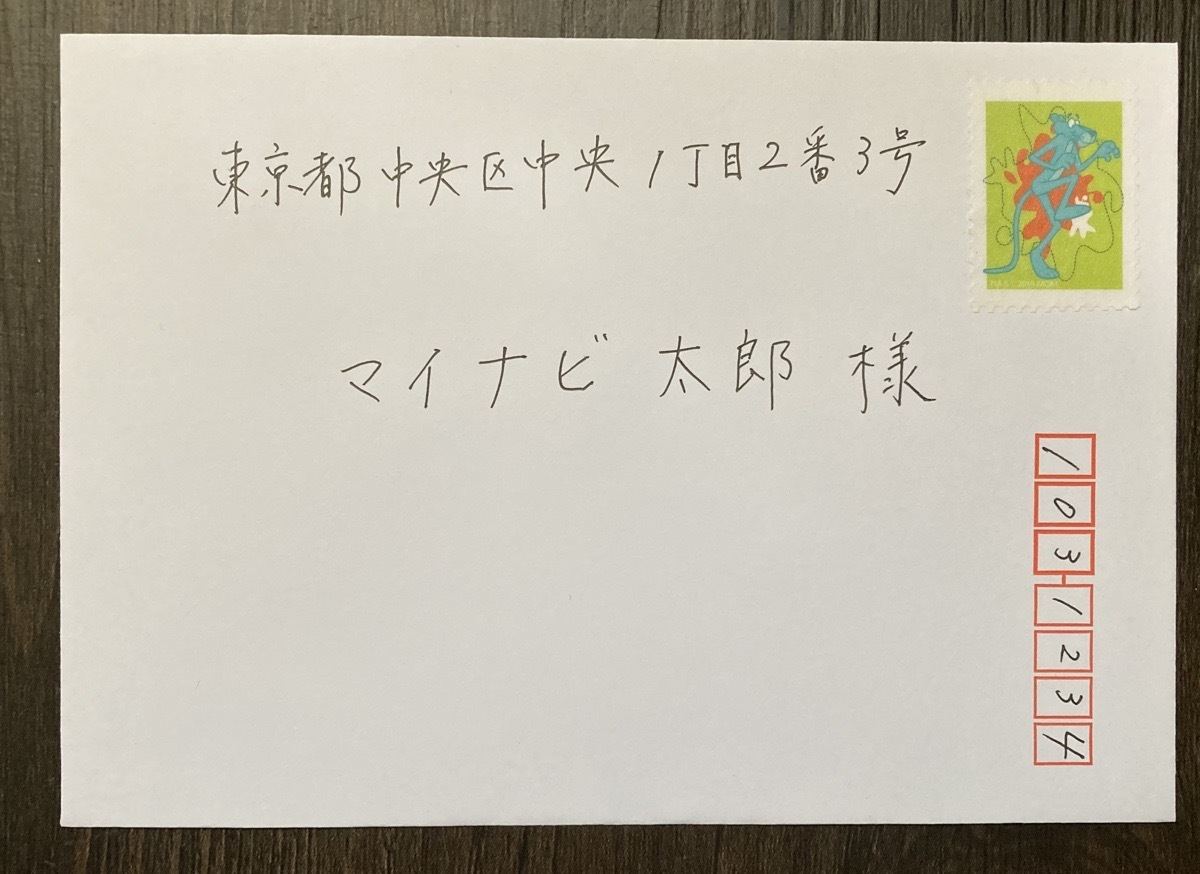 東京都中央区中央1丁目2番3号
マイナビ 太郎 様
1031234